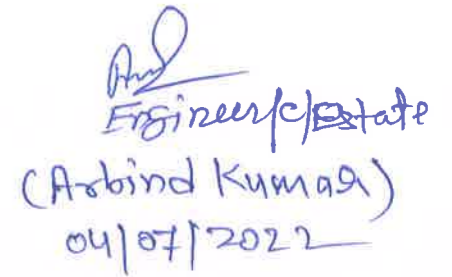 Engineer/c/Estate
(Arbind Kumar)
04/07/2022